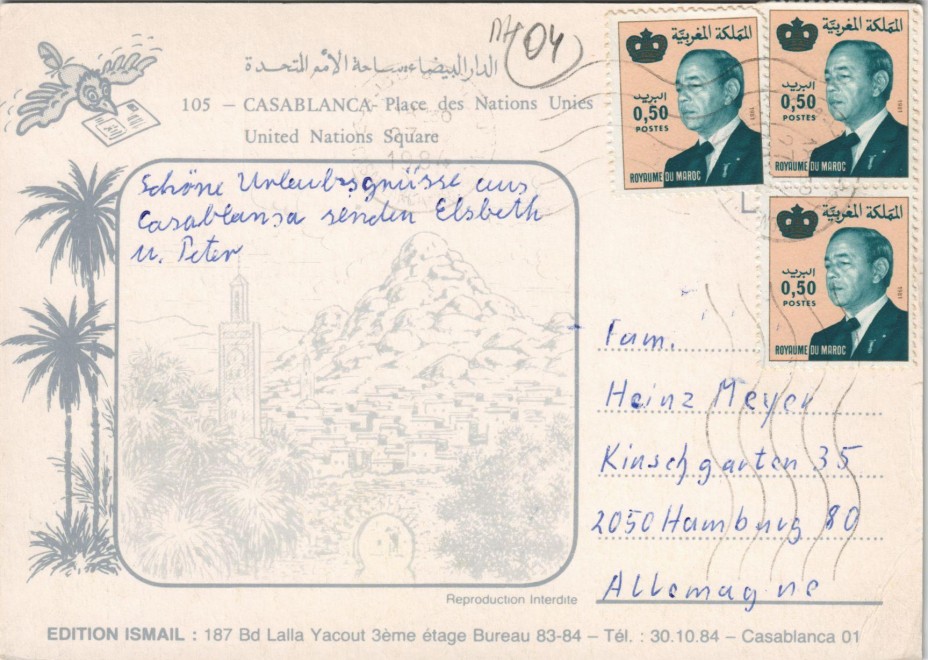 الدار البيضاء، ساحة الأمم المتحدة
04
105 – CASABLANCA- Place des Nations Unies
United Nations Square
المملكة المغربية
البريد
0,50
POSTES
ROYAUME DU MAROC
المملكة المغربية
البريد
0,50
POSTES
ROYAUME DU MAROC
المملكة المغربية
البريد
0,50
POSTES
1981
ROYAUME DU MAROC
Schöne Urlaubsgrüsse aus
Casablansa senden Elsbeth
u. Peter
Fam.
Heinz Meyer
Kirschgarten 35
2050 Hamburg 80
Allemagne
Reproduction Interdite
EDITION ISMAIL : 187 Bd Lalla Yacout 3ème étage Bureau 83-84 – Tél. : 30.10.84 – Casablanca 01